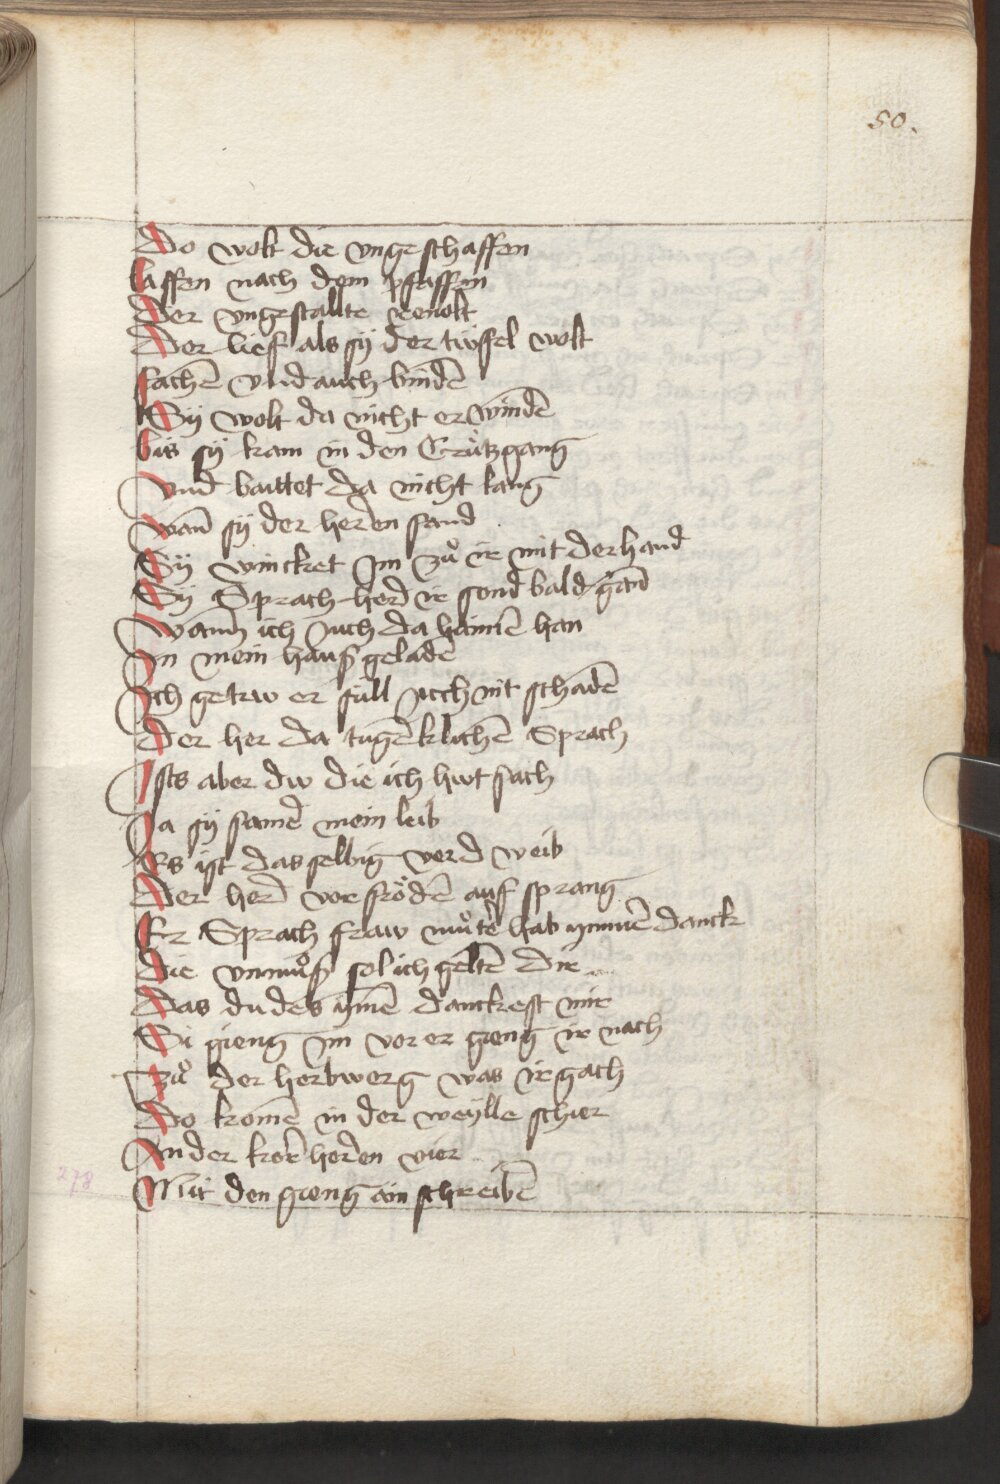 50.
Do wolt die vngeschaffen
laffen nach dem pfaffen
Der vngestallte
Der lieff als sÿ der tüffel wolt
fachē vnd auch bindē
Sÿ wolt da nicht erwindē
bis sÿ kam in den Crützgang
vnd baittet da nicht lang
wan̄ sÿ der herren fand
Sÿ winckret Im zuͦ ir mit der hand
Sÿ Sprach herr ir sond bald gan̄
wann ich Juch da haimē han
In mein hauß geladē
Ich getrw er süll Juch nit schadē
Der her da tugēklichē Sprach
Ists aber dw die ich hwt sach
Ja sÿ samer mein leib
Es ist das selbig werd weib
Der herr vor frödē auf sprang
Er Sprach fraw muͦtˀ hab ymmē danck
Die vnmuͦß sol ich geltē dir
Das du des ymē danckest mir
Si gieng Im vor er gieng ir nach
Zuͦ der herbwerg was ir gach
Do komē in der weÿlle schier
An der korherren vier
278
Mit den gieng ain schreibē